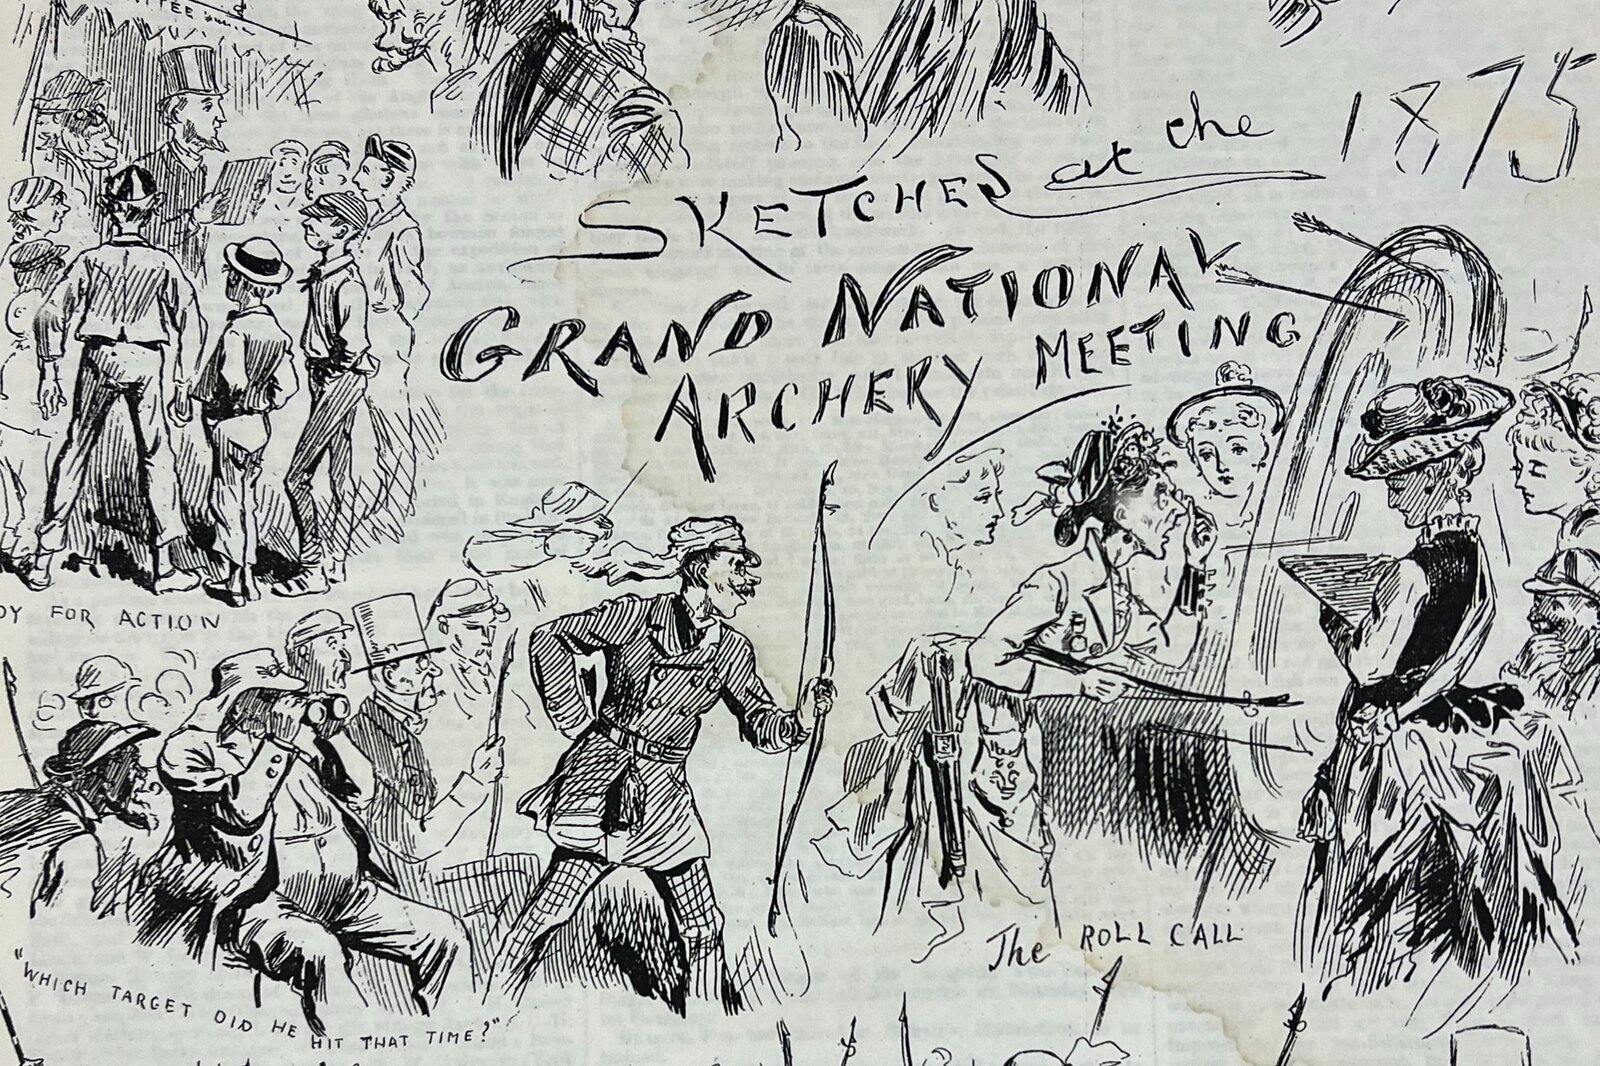 SKETCHES at the 1875
GRAND NATIONAL
ARCHERY MEETING
FOR ACTION
The ROLL CALL
"WHICH TARGET DID HE HIT THAT TIME?"